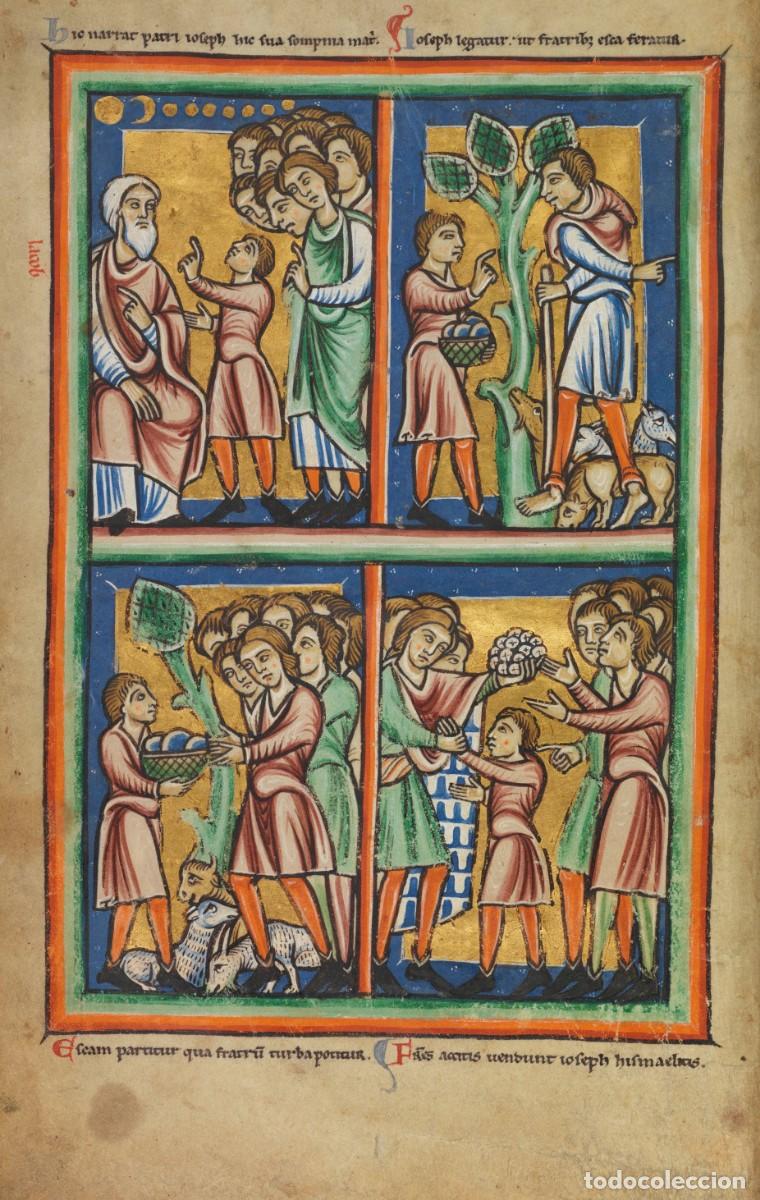 Hic narrat patri ioseph hic sua sompnia mat̄.
Ioseph legatur. ut fratribꝫ esca feratur.
Iacob
Escam partitur qua fratrū turba potitur.
Fr̄es accitis uendunt ioseph hismaelitis.
todocoleccion